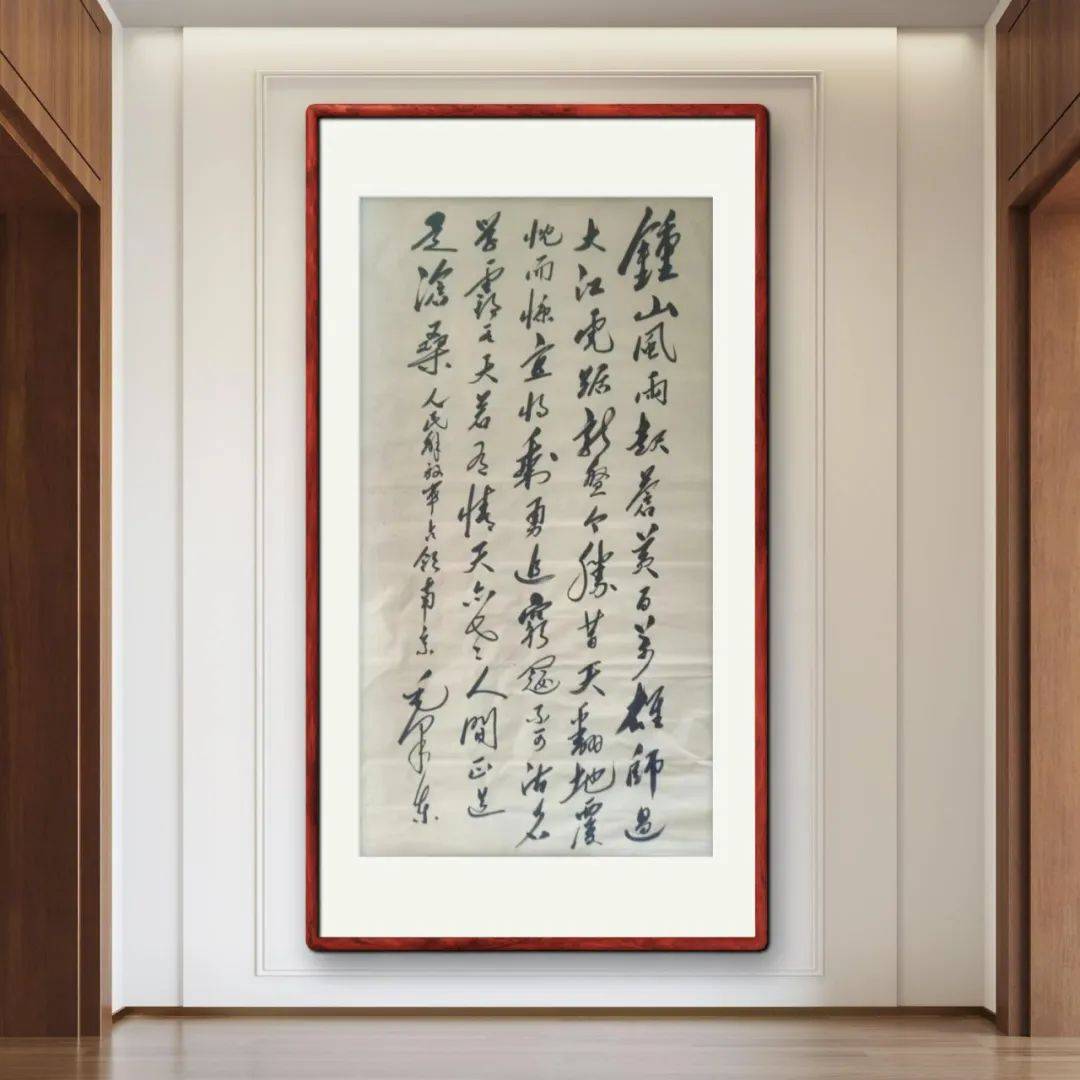 鍾山風雨起蒼黃百萬雄師過
大江虎踞龍盤今勝昔天翻地覆
慨而慷宜將剩勇追窮寇不可沽名
學霸王天若有情天亦老人間正道
是滄桑人民解放軍占領南京毛澤東